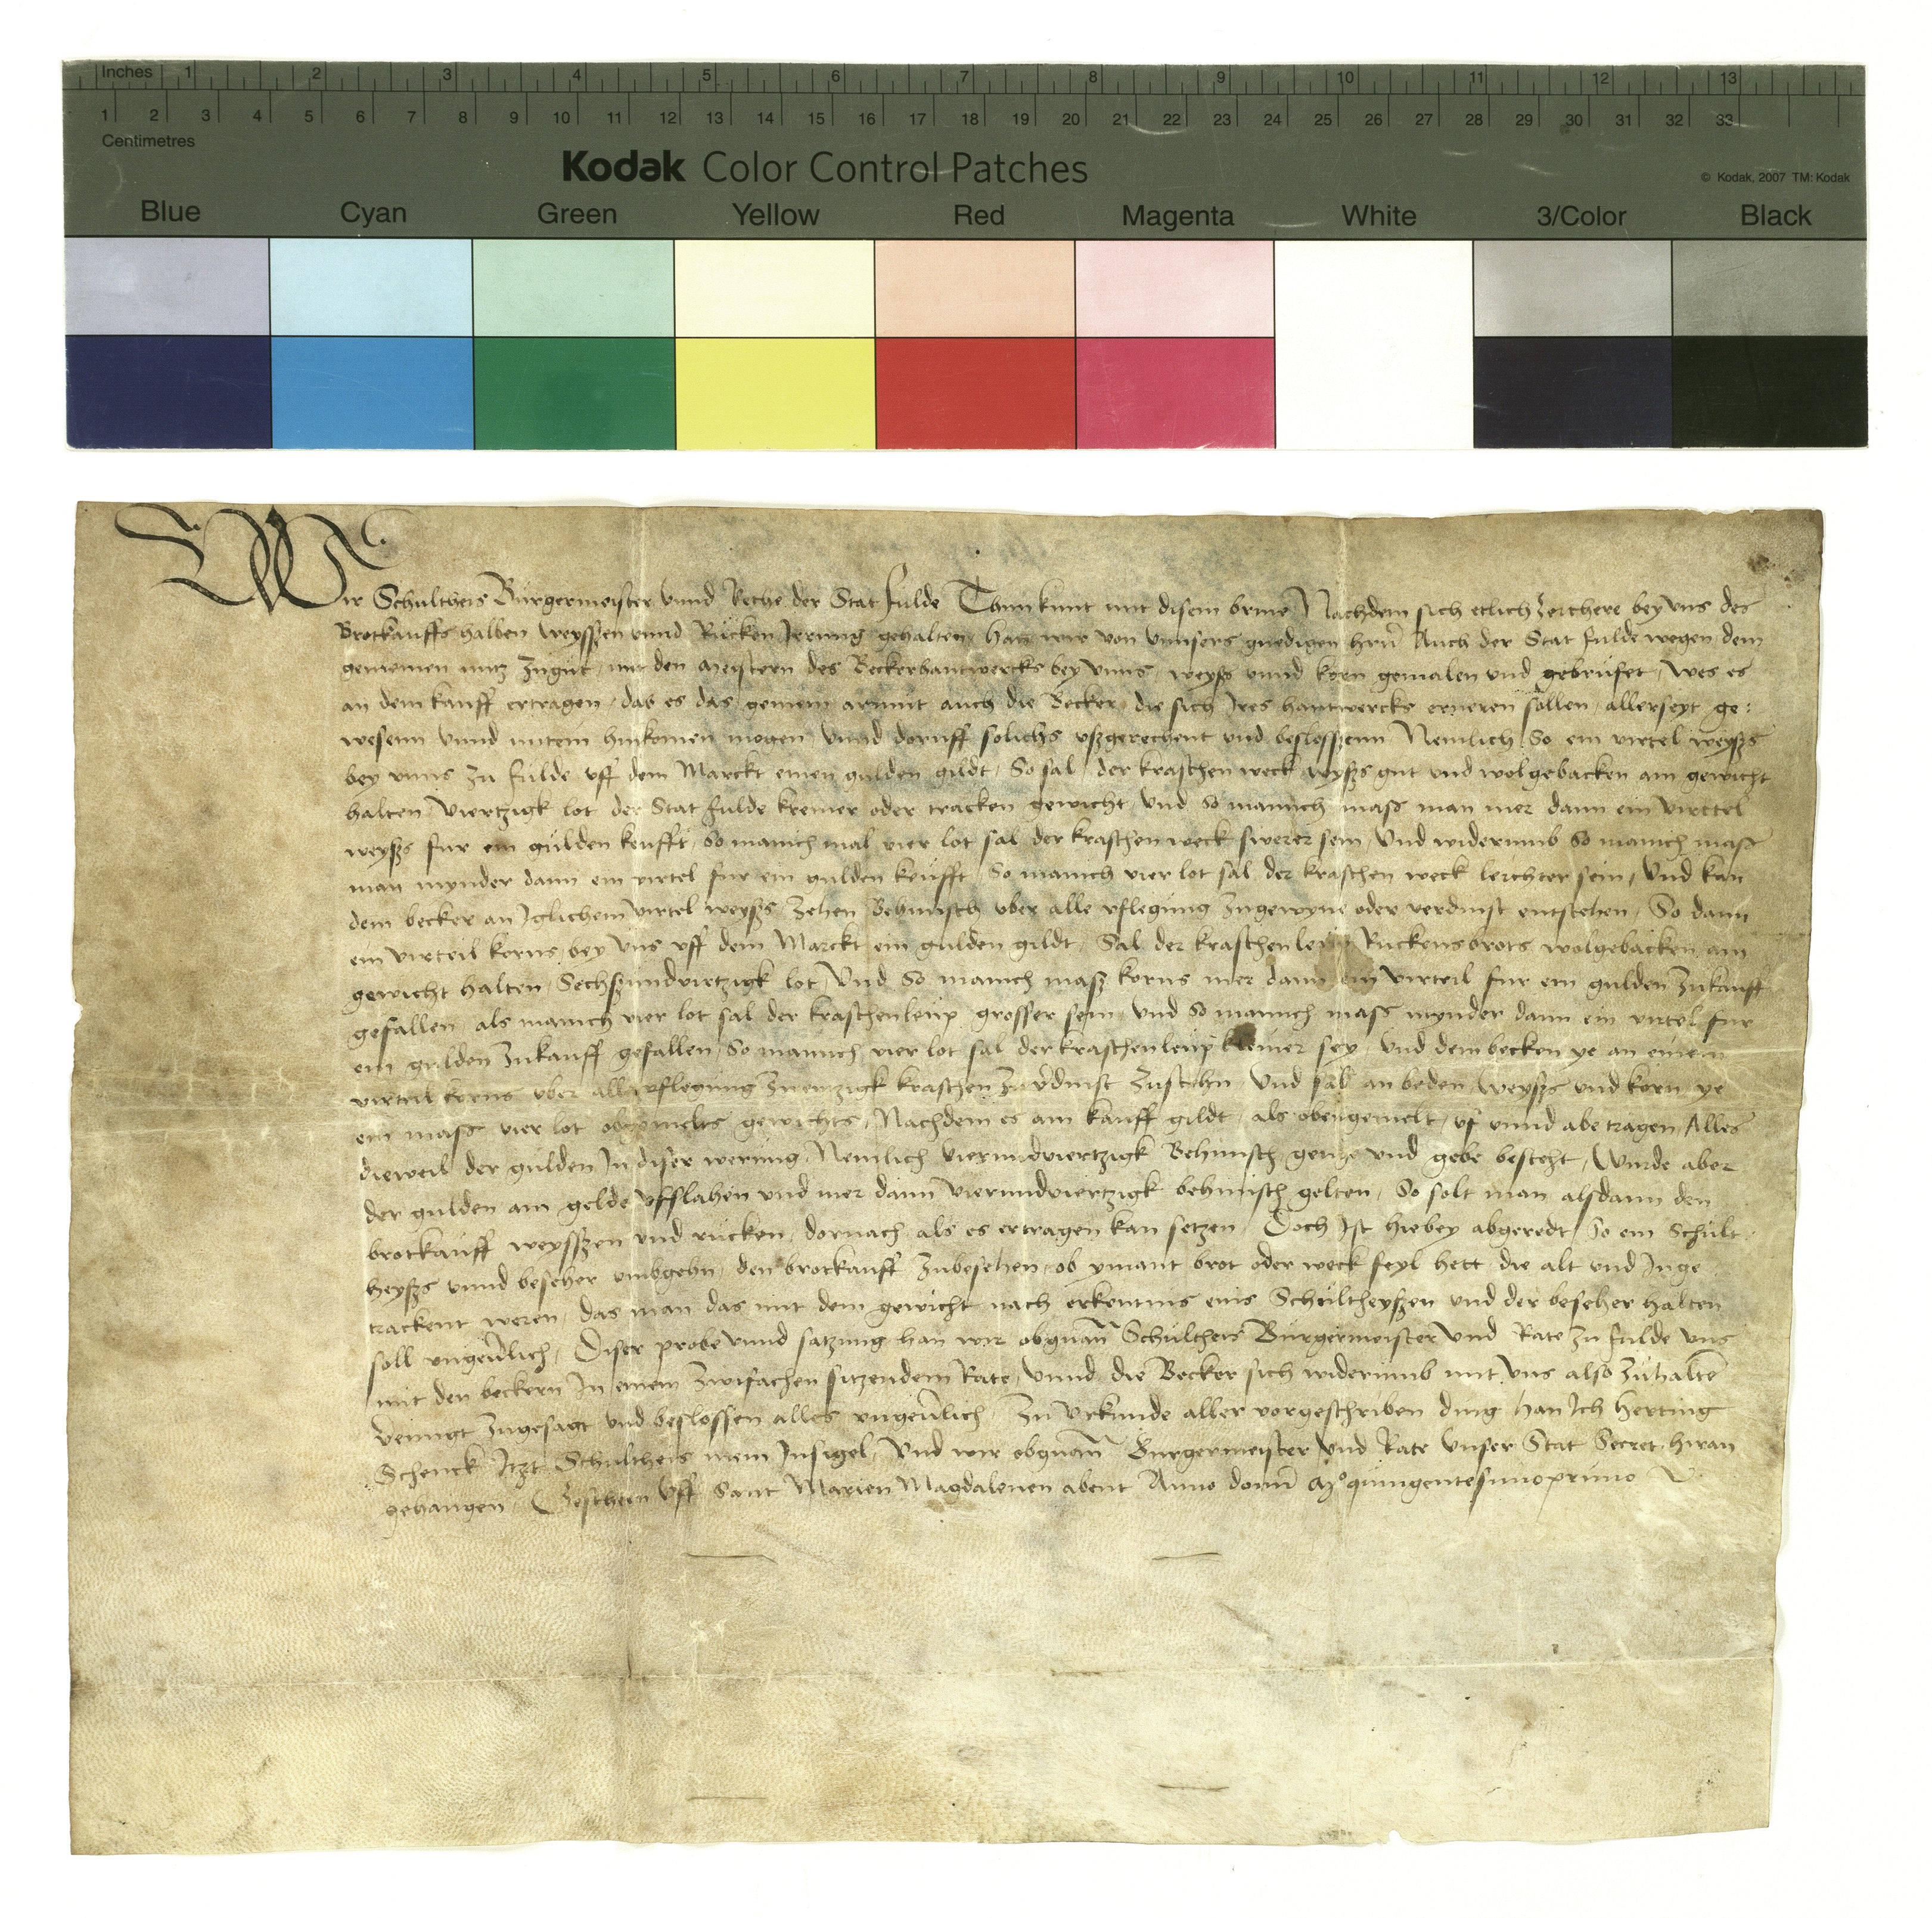 Inches 1 2 3 4 5 6 7 8 9 10 11 12 13
1 2 3 4 5 6 7 8 9 10 11 12 13 14 15 16 17 18 19 20 21 22 23 24 25 26 27 28 29 30 31 32 33
Centimetres
Kodak Color Control Patches
© Kodak, 2007 TM: Kodak
Blue Cyan Green Yellow Red Magenta White 3/Color Black
Wir Schultheis Burgermeister vnnd Rethe der Stat Fulde Thun kunt mit disem brine Nachdem sich etlich zeithere bey vns des
Brotkauffs halben weyssen vnnd Rucken Jerung gehalten han wir von vnnsers gnedigen hrn Auch der Stat fulde wegen dem
gemeinen nutz zugut mit den meistern des Beckerhantwercks bey vnns weyß vnnd korn gemalen vnd gebrufet wes es
an dem kauff ertragen das es das gemein armut auch die Becker die sich Jres hantwercks erneren sollen allerseyt ge:
wesenn vnnd mitein hinkomen mogen vnnd doruff solichs vßgerechent vnd beslossenn Nemlich So ein virtel weyßs
bey vnns zu fulde vff dem Marckt einen gulden gildt So sal der kraschen weck weyßs gut vnd wolgebacken am gewicht
halten viertzigk lot der Stat fulde kremer oder tracken gewicht vnd so manich mass man mer dann ein virttel
weyßs fur ein gulden keufft so manich mal vier lot sal der kraschen weck swerer sein vnd widerumb so manich mass
man mynder dann ein virtel fur ein gulden keufft So manich vier lot sal der kraschen weck leichter sein vnd kan
dem becker an Jglichem virtel weyßs zehen Behmisch vber alle vflegung zugewyne oder verdinst entstehen So dann
ein virteil korns bey vns vff dem Marckt ein gulden gildt Sal der kraschen Ruckensbrots wolgebacken am
gewicht halten Sechßundvirtzigk lot Vnd So manich maß korns mer dann ein virteil fur ein gulden zukauff
gefallen als manich vier lot sal der kraschenleup grosser sein vnd so manich mass mynder dann ein virtel fur
ein gulden zukauff gefallen So manich vier lot sal der kraschenleup kleiner sey vnd dem becken ye an einem
virteil korns vber all vflegung zwentzigk kraschen zuvdinst zusteen Vnd sal an beden weyßs vnd korn ye
ein mass vier lot obgemelts gewichts Nachdem es am kauff gildt als obengemelt vf vnnd abe tragen Alles
dieweil der gulden In diser werung Nemlich vierundviertzigk Behmisch genge vnd gebe besteht Wurde aber
der gulden am gelde vfflahen vnd mer dann vierundviertzigk behmisch gelten So solt man alsdann den
brotkauff weyssen vnd rucken dornach als es ertragen kan setzen Doch Ist hiebey abgeredt So ein Schult
heyßs vnnd beseher vmbgehn den brotkauff zubesehen ob ymant brot oder weck feyl hett die alt vnd Inge
trackent weren das man das mit dem gewicht nach erkentnis eins Schultheyßen vnd der beseher halten
soll vngeuerlich Diser probe vnnd satzung han wir obgnan Schultheis Burgermeister vnd Rate zu fulde vns
mit den beckern In einem zwifachen sitzendem Rate vnnd die Becker sich widerumb mit vns also zuhalten
veinigt zugesagt vnd beslossen alles vngeuerlich Zu vrkunde aller vorgeschriben ding han Ich Herting
Schenck Itzt Schultheis mein Insigel Vnd wir obgnan Burgermeister vnd Rate vnser Stat Secret hiran
gehangen Geschehn vff Sant Marien Magdalenen abent Anno domi Mº quingentesimoprimo